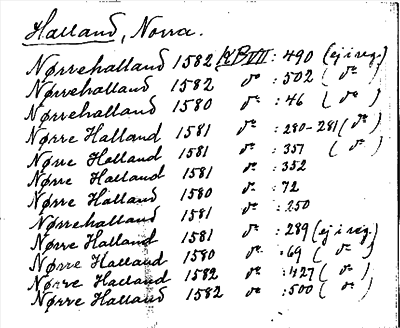 Halland, Norra.
Nørrehalland 1582 KBVII : 490 (ej i reg.)
Nørrehalland 1582 do : 502 ( do )
Nørrehalland 1580 do : 46 ( do )
Nørre Halland 1581 do : 280-281 ( do )
Nørre Halland 1581 do : 351 ( do )
Nørre Halland 1581 do : 352
Nørre Halland 1580 do : 72
Nørrehalland 1581 do : 250
Nørre Halland 1581 do : 289 (ej i reg.)
Nørre Halland 1580 do : 69 ( do )
Nørre Halland 1582 do : 427 ( do )
Nørre Halland 1582 do : 500 ( do )